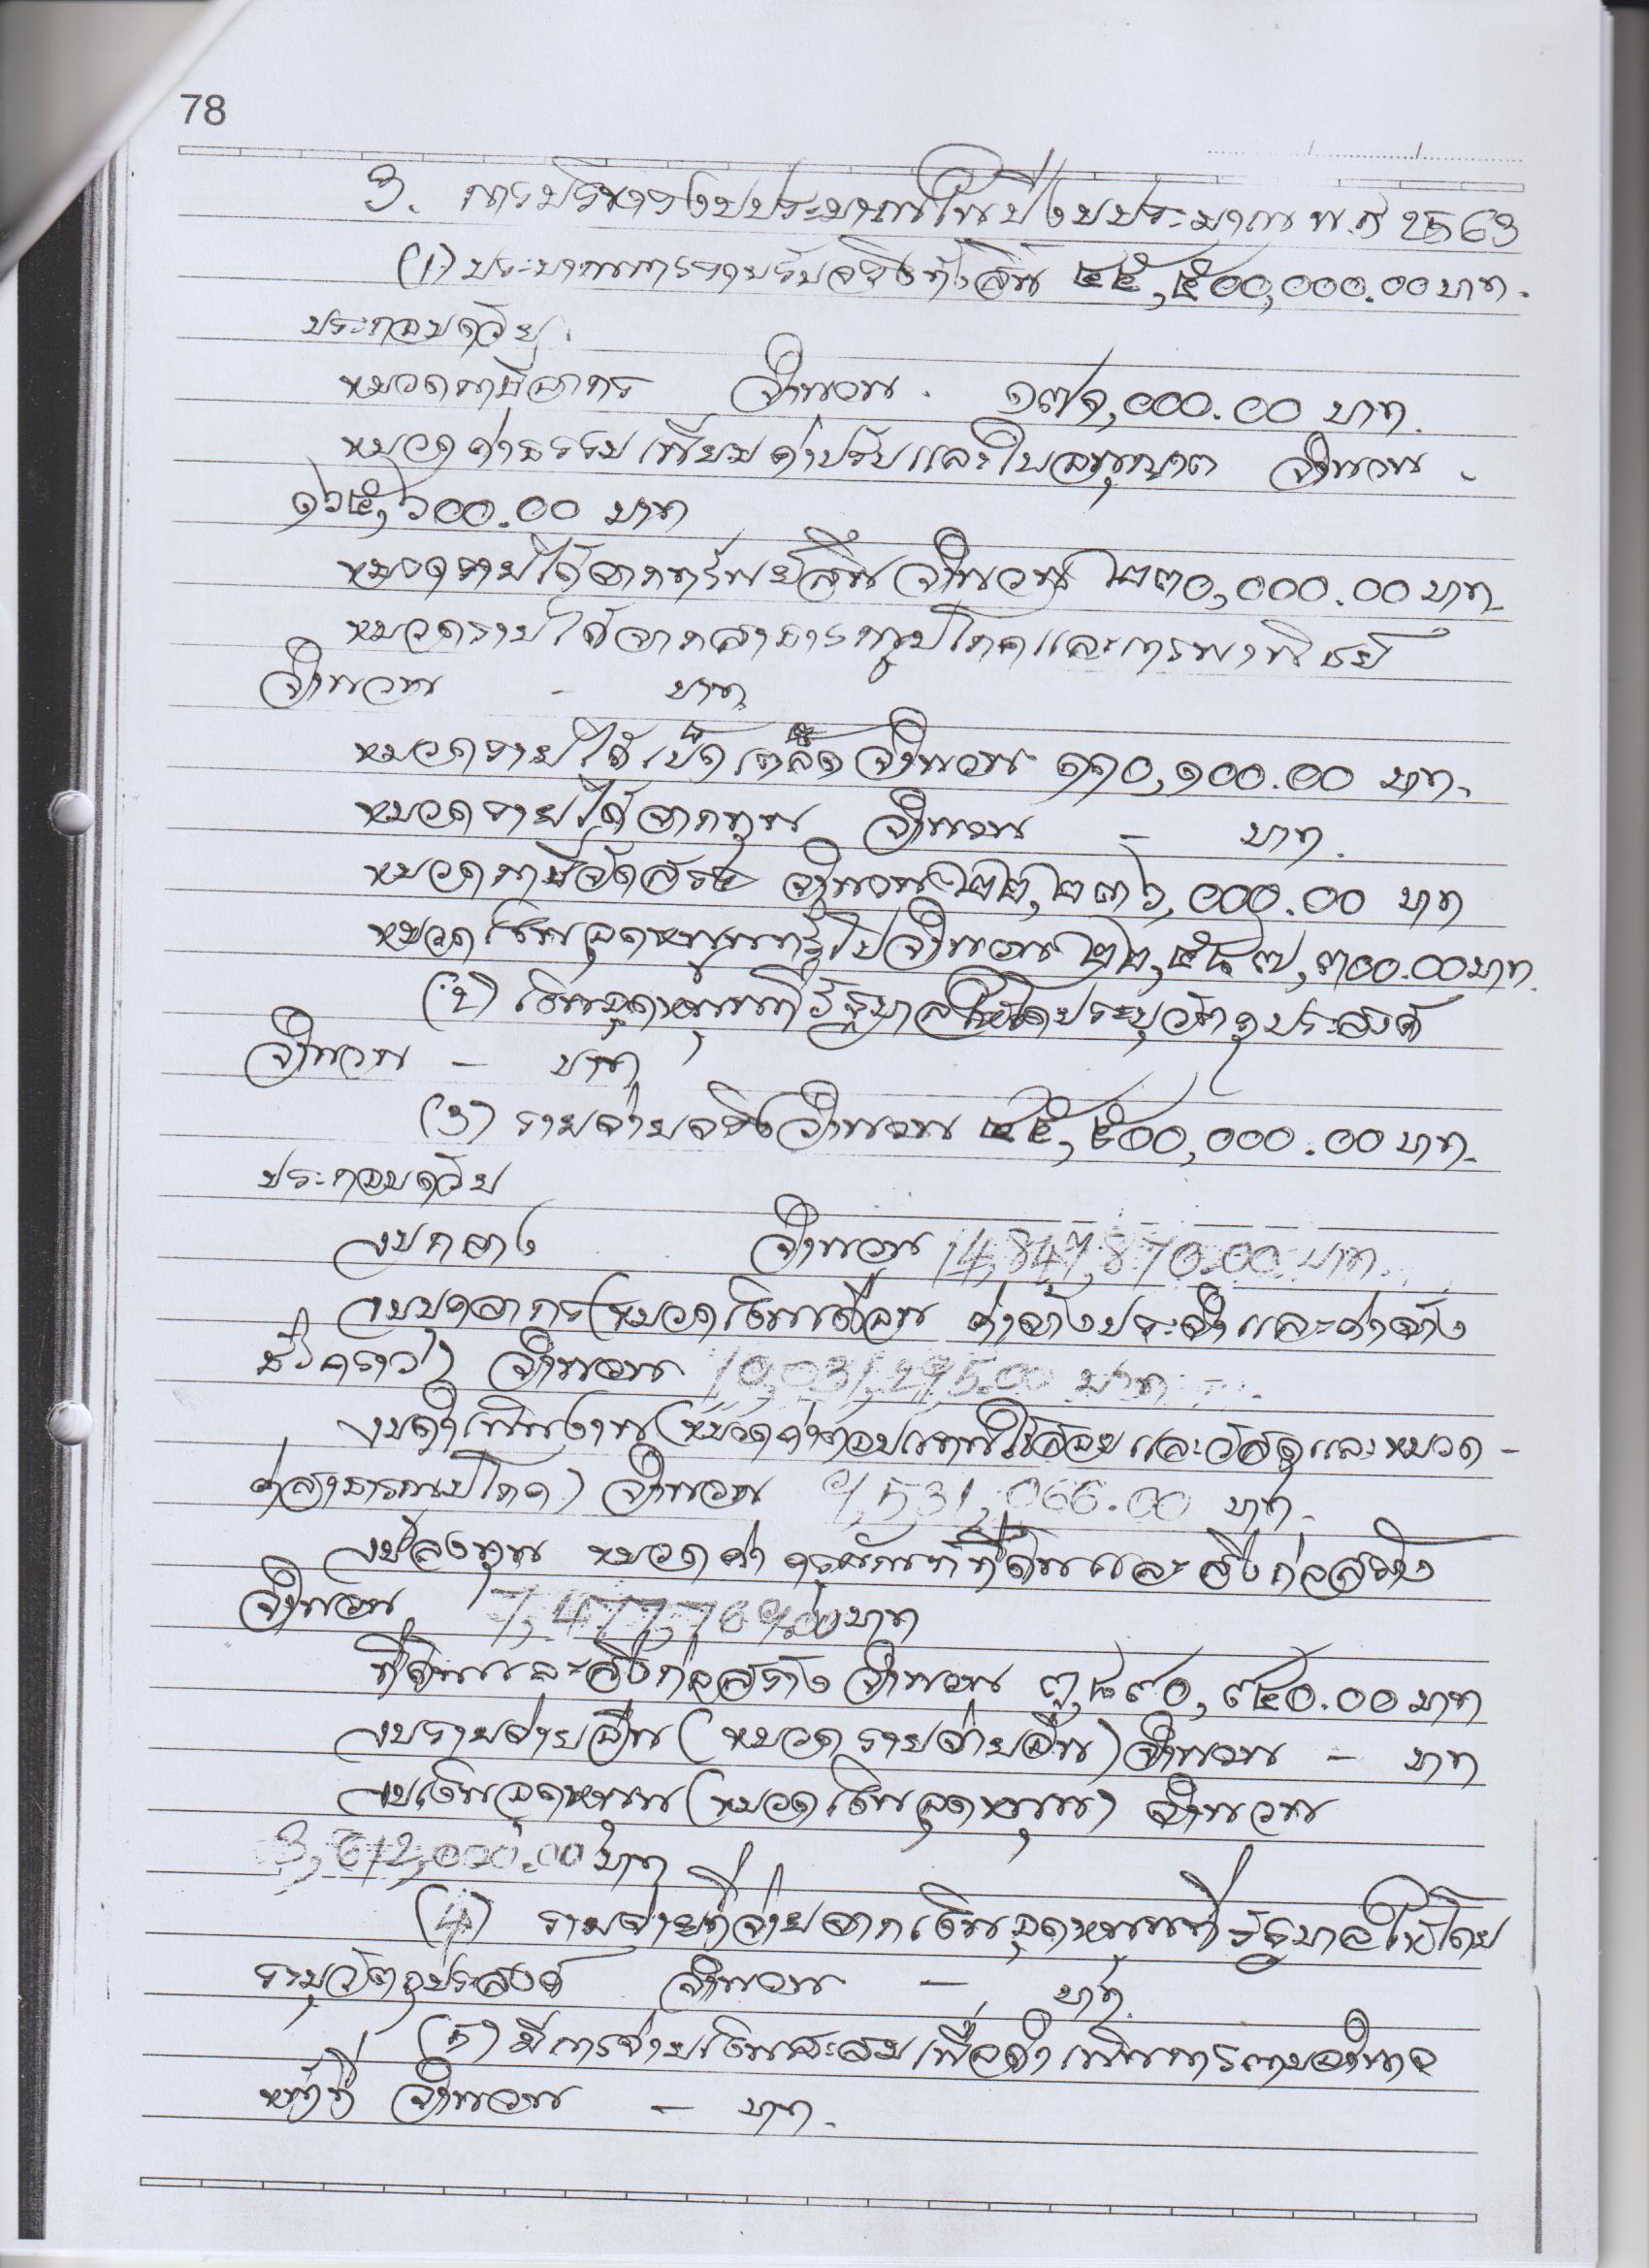 78
3. การบริหารงบประมาณในปีงบประมาณ พ.ศ 2563
(1) ประมาณการรายรับจริงทั้งสิ้น ๔๕,๕๐๐,๐๐๐.๐๐ บาท.
ประกอบด้วย.
หมวดภาษีอากร จำนวน . ๑๗๑,๐๐๐.๐๐ บาท.
หมวดค่าธรรมเนียม ค่าปรับและใบอนุญาต จำนวน .
๑๖๕,๖๐๐.๐๐ บาท
หมวดรายได้จากทรัพย์สิน จำนวน ๒๓๐,๐๐๐.๐๐ บาท
หมวดรายได้จากสาธารณูปโภคและการพาณิชย์
จำนวน - บาท
หมวดรายได้เบ็ดเตล็ด จำนวน ๑๑๐,๑๐๐.๐๐ บาท.
หมวดรายได้จากทุน จำนวน - บาท.
หมวดภาษีจัดสรร จำนวน ๒๒,๒๓๖,๐๐๐.๐๐ บาท
หมวดเงินอุดหนุนทั่วไป จำนวน ๒๒,๕๘๗,๓๐๐.๐๐ บาท
(2) เงินอุดหนุนที่รัฐบาลให้โดยระบุวัตถุประสงค์
จำนวน - บาท
(3) รายจ่ายจริง จำนวน ๔๕,๕๐๐,๐๐๐.๐๐ บาท.
ประกอบด้วย
งบกลาง จำนวน 14,847,870.00 บาท.
งบบุคลากร (หมวดเงินเดือน ค่าจ้างประจำและค่าจ้าง
ชั่วคราว) จำนวน บาท
งบดำเนินงาน (หมวดค่าตอบแทนใช้สอยและวัสดุและหมวด -
ค่าสาธารณูปโภค) จำนวน 9,531,066.00 บาท.
งบลงทุน หมวดค่า ครุภัณฑ์ที่ดินและสิ่งก่อสร้าง
จำนวน 7,477,769.00 บาท
ที่ดินและสิ่งก่อสร้าง จำนวน ๓,๘๙๐,๙๕๐.๐๐ บาท
งบรายจ่ายอื่น (หมวด รายจ่ายอื่น) จำนวน - บาท
งบเงินอุดหนุน (หมวดเงินอุดหนุน) จำนวน
3,612,000.00 บาท
(4) รายจ่ายที่จ่ายจากเงินอุดหนุนที่รัฐบาลให้โดย
ระบุวัตถุประสงค์ จำนวน - บาท.
(5) มีการจ่ายเงินสะสมเพื่อดำเนินการตามอำนาจ
หน้าที่ จำนวน - บาท.